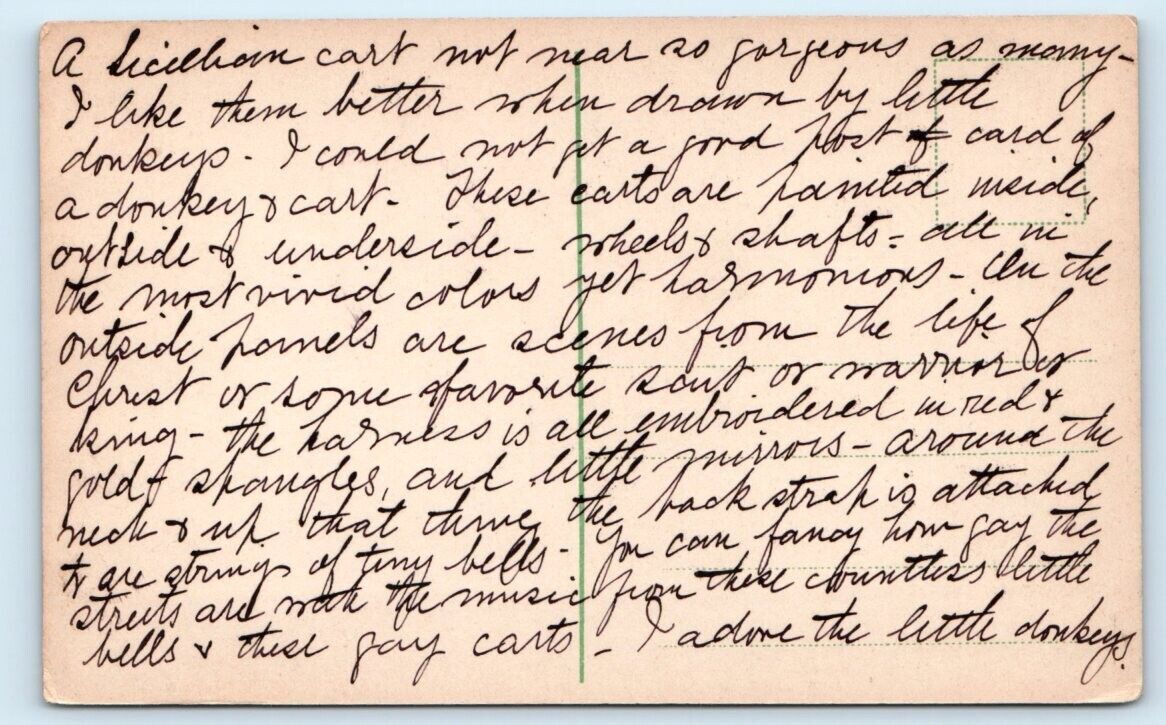 A Sicillian cart not near so gorgeous as many-
I like them better when drawn by little
donkeys. I could not get a good post card of
a donkey & cart. These carts are painted inside,
outside & underside - wheels & shafts - all in
the most vivid colors yet harmonious - On the
outside panels are scenes from the life of
Christ or some favorite saint or warrior or
king - the harness is all embroidered in red &
gold & spangles, and little mirrors - around the
neck & up that thing the back strap is attached
to are strings of tiny bells. You can fancy how gay the
streets are with the music from these countless little
bells & these gay carts - I adore the little donkeys.